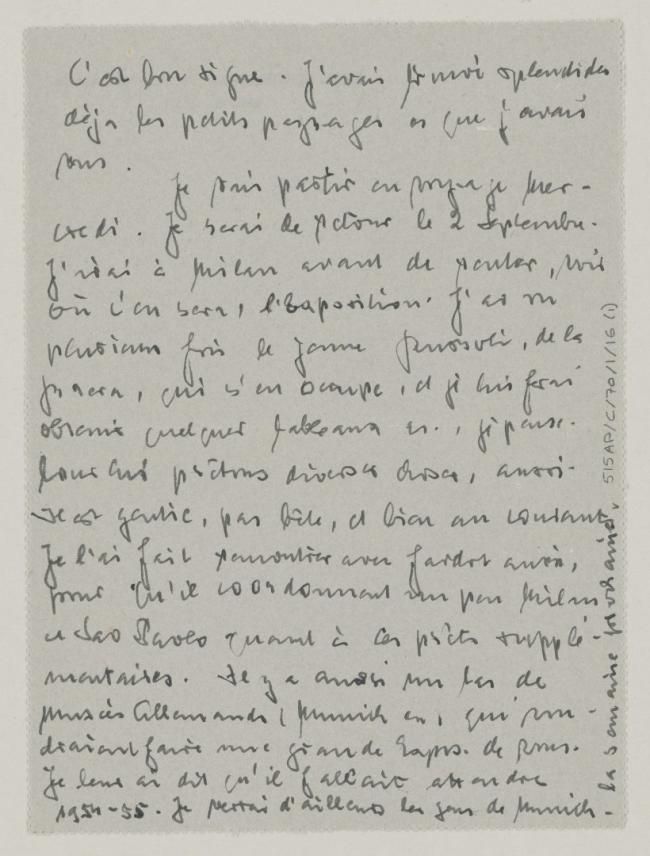 C'est bon signe. J'avais trouvé splendides
déjà les petits paysages et que j'avais
vus.
Je vais partir en voyage Mer-
credi. Je serai de retour le 2 Septembre.
J'irai à Milan avant de rentrer, voir
où c'en sera, l'Exposition. J'ai vu
plusieurs fois le jeune, de la
qui s'en occupe, et je lui ferai
obtenir quelques tableaux etc., je pense.
prêtons diverses choses, aussi.
Il est gentil, pas bête, et bien au courant
Je l'ai fait rencontrer avec Jardot aussi,
pour qu'il coordonnent un peu Milan
et Sao Paolo quant à ces prêts supplé-
mentaires. Il y a aussi un tas de
Musées Allemands (Munich etc, qui vou-
draient faire une grande Expos. de vous.
Je leur ai dit qu'il fallait attendre
1954-55. Je verrai d'ailleurs les gens de Munich
la semaine prochaine.
515AP/C/70/1/16 (1)